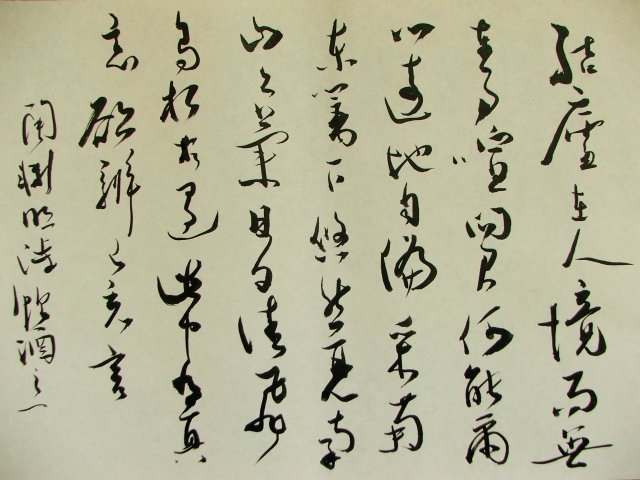 結廬在人境而無
車馬喧問君何能爾
心遠地自偏采菊
東籬下悠然見南
山山氣日夕佳飛
鳥相與還此中有真
意欲辨已忘言
陶淵明詩飲酒之一